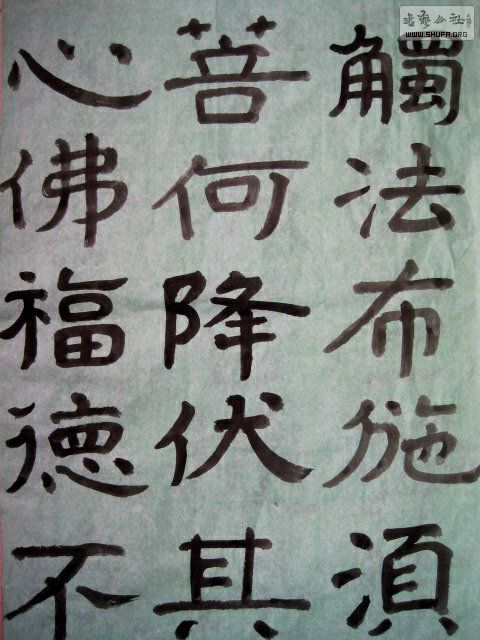 觸法布施須
菩何降伏其
心佛福德不
書藝公社
WWW.SHUFA.ORG